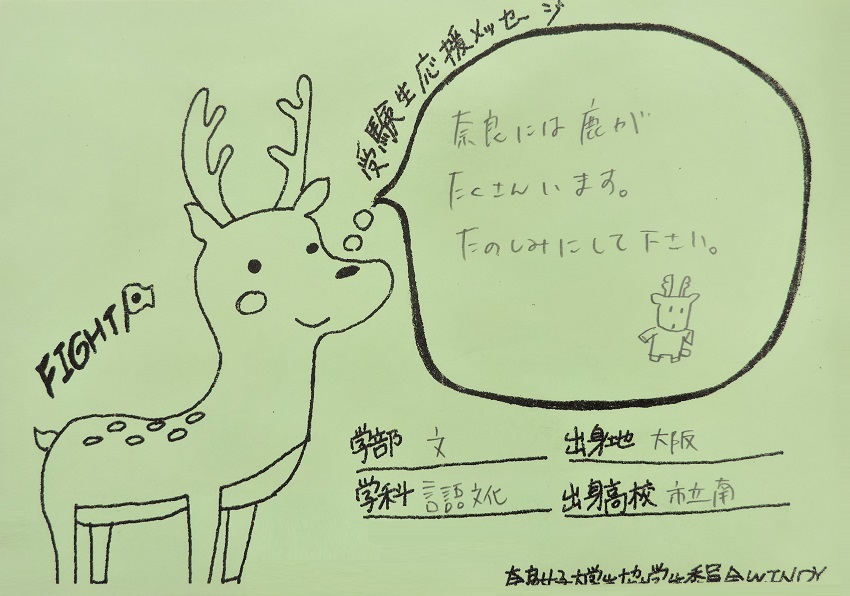 受験生応援メッセージ
奈良には鹿が
たくさんいます。
たのしみにして下さい。
FIGHT
学部 文
出身地 大阪
学科 言語文化
出身高校 市立南
奈良女子大学生協学生委員会WINDY